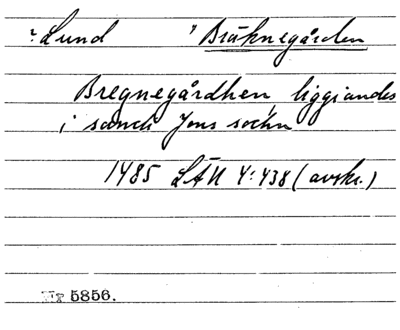 ? Lund ? Bräknegården
Bregnegårdhen, liggiandes
i sanct Jens sockn
1485 LÄU 4:438 (avskr.)
Nr 5856.